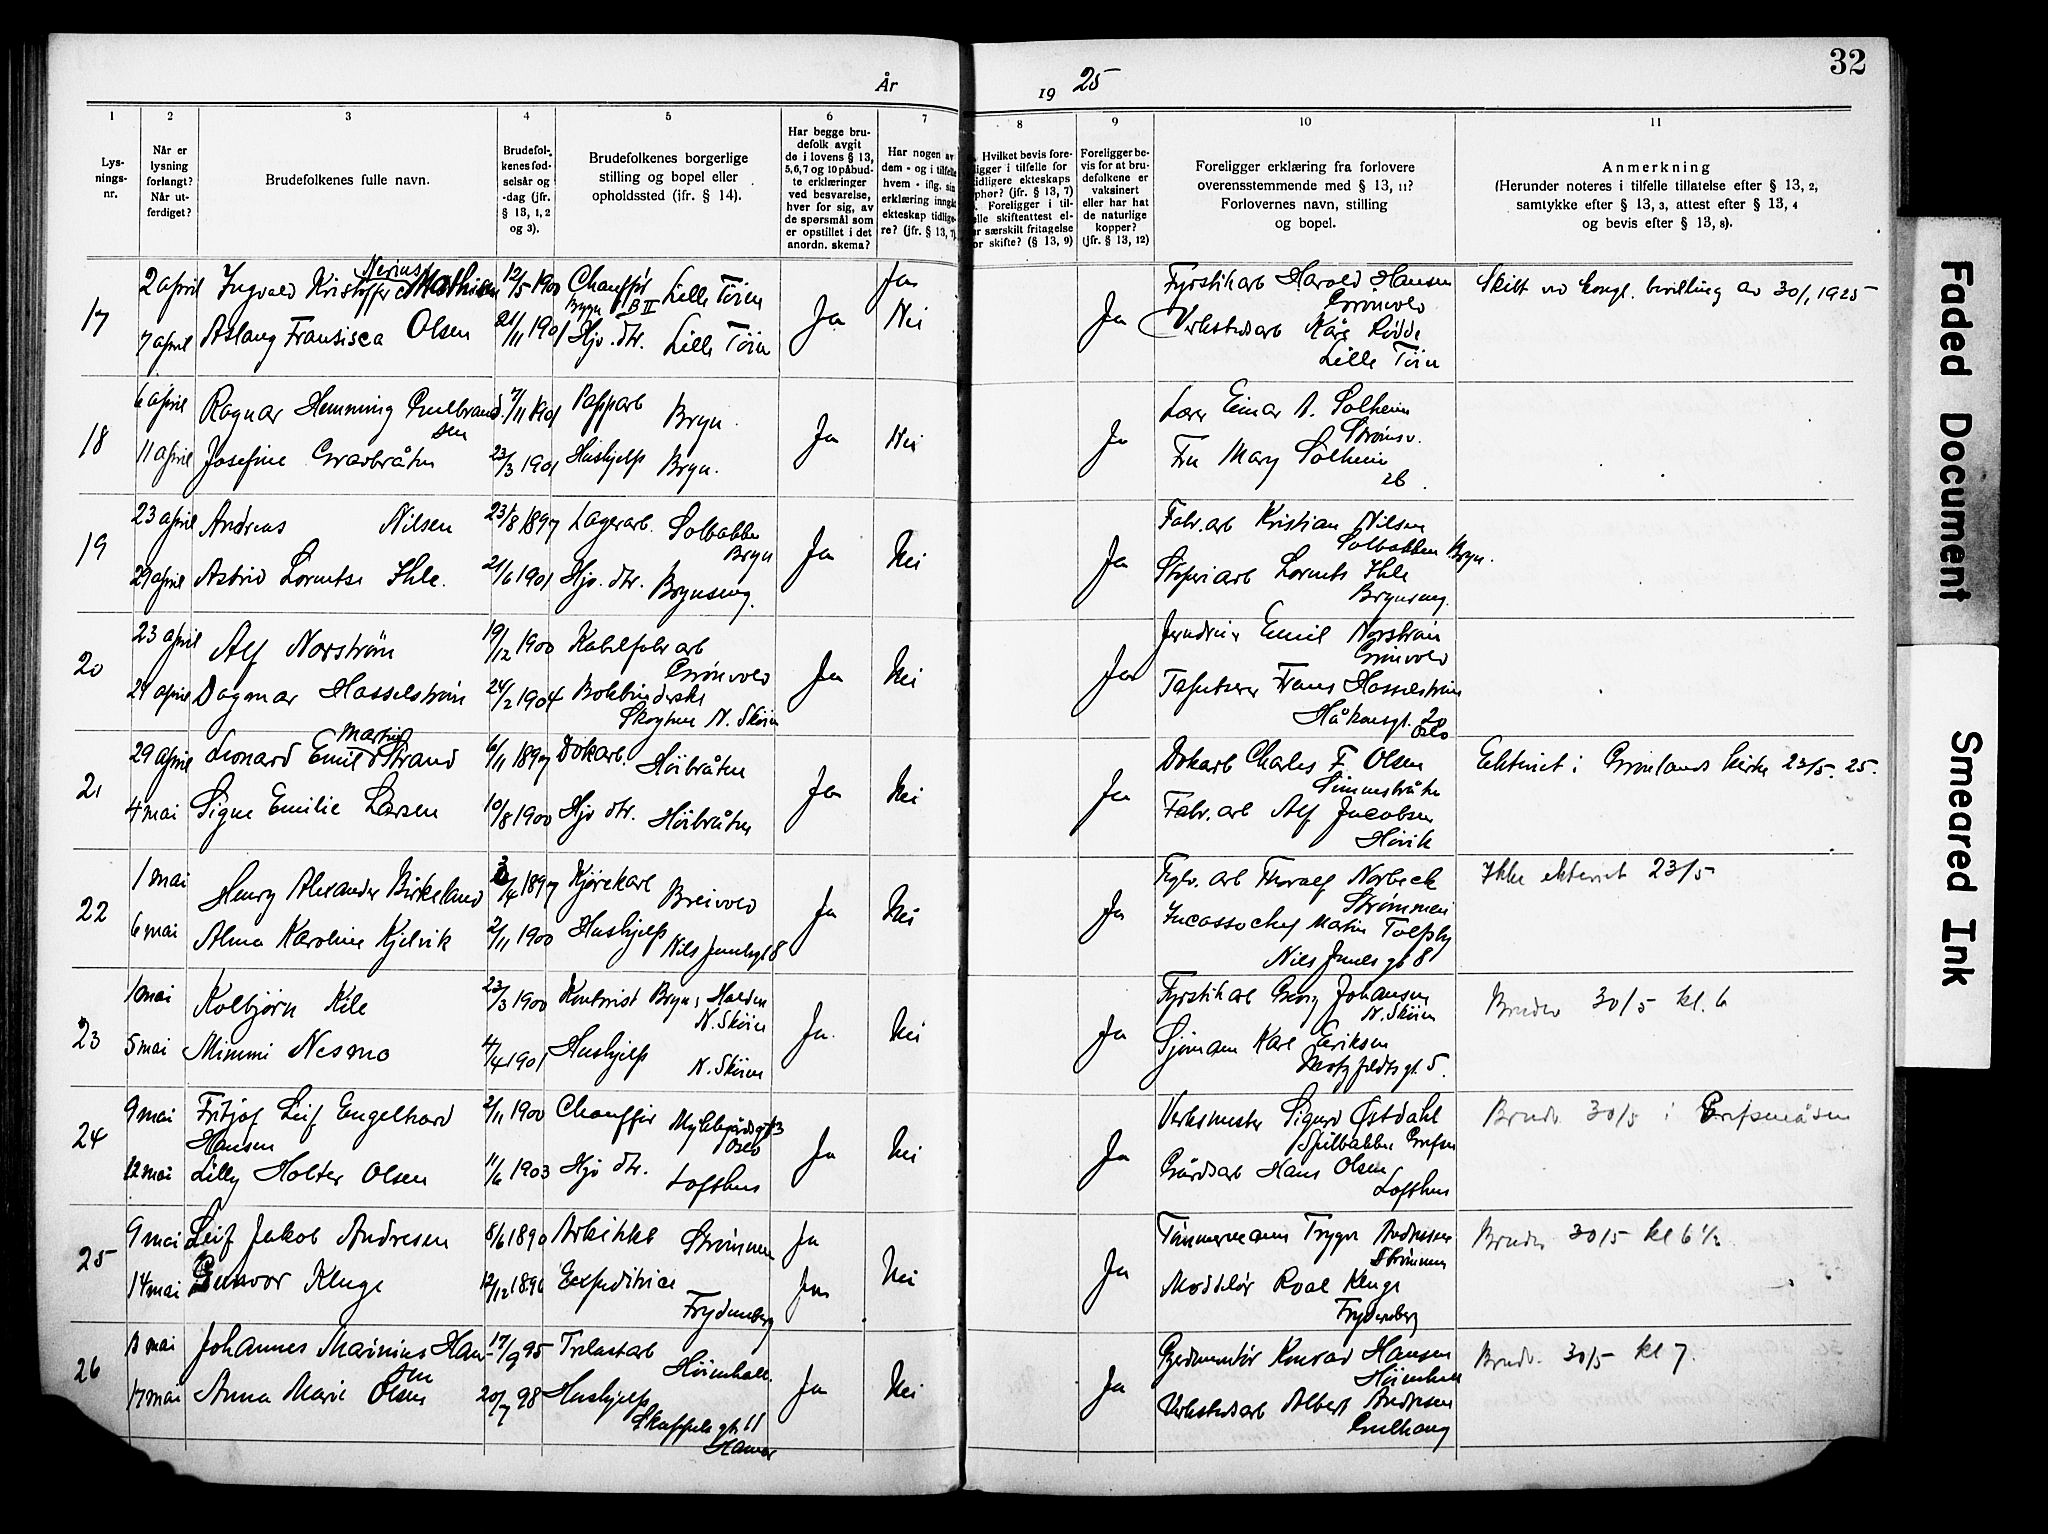 32
År
19 25
1
2
3
4
5
6
7
8
9
10
11
Lys-
nings-
nr.
Når er
lysning
forlangt?
Når ut-
ferdiget?
Brudefolkenes fulle navn.
Brudefol-
kenes fød-
selsår og
-dag (jfr.
§ 13, 1, 2
og 3).
Brudefolkenes borgerlige
stilling og bopel eller
opholdssted (jfr. § 14).
Har begge bru-
defolk avgit
de i lovens § 13,
5,6,7 og 10 påbud-
te erklæringer
ved besvarelse,
hver for sig, av
de spørsmål som
er opstillet i det
anordn. skema?
Har nogen av
dem - og i tilfelle
hvem - iflg. sin
erklæring inngåt
ekteskap tidlige-
re? (jfr. § 13, 7)
Hvilket bevis fore-
ligger i tilfelle for
tidligere ekteskaps
ophør? (jfr. § 13, 7)
Foreligger i til-
felle skifteattest el-
ler særskilt fritagelse
for skifte? (§ 13, 9)
Foreligger be-
vis for at bru-
defolkene er
vaksinert
eller har hat
de naturlige
kopper?
(jfr. § 13, 12)
Foreligger erklæring fra forlovere
overensstemmende med § 13, 11?
Forlovernes navn, stilling
og bopel.
Anmerkning
(Herunder noteres i tilfelle tillatelse efter § 13, 2,
samtykke efter § 13, 3, attest efter § 13, 4
og bevis efter § 13, 8).
17
2 april
7 april
Nerius
Ingvald Kristoffer Mathisen
Aslaug Fransisca Olsen
12/5 1900
21/11 1901
Chauffør Lille Tøien
Bryn B II
Hjv. dtr. Lille Tøien
Ja
Ja
Nei
Ja
Fyrstikarb Harald Hansen
Grønvold
Verkstedsarb Kåre Rødde
Lille Tøien
Skilt ved kongl. bevilling av 30/1 1925
18
6 april
11 april
Ragnar Hemming Gulbrand
sen
Josefine Gravbråten
7/11 1901
23/3 1901
Papparb Bryn.
Hushjelp Bryn.
Ja
Nei
Ja
Lærer Einar A. Solheim
Strømsv.
Fru Mary Solheim
26
19
23 april
29 april
Andreas Nilsen
Astrid Lorentse Ihle.
23/8 1897
21/6 1901
Lagerarb. Solbakken
Bryn
Hjv. dtr. Brynseng.
Ja
Nei
Ja
Fabr.arb Kristian Nilsen
Solbakken Bryn.
Støperiarb Lorents Ihle
Brynseng.
20
23 april
29 april
Alf Norstrøm
Dagmar Hasselstrøm
19/12 1900
24/2 1904
Kabelfabr arb
Grønvold
Bokbinderske
Skogtun N. Skøien
Ja
Nei
Ja
Jerndreier Emil Norstrøm
Grønvold
Tapetserer Frans Hasselstrøm
Håkonsgt. 20
Oslo
21
29 april
4 mai
Martin
Leonard Emil Strand
Signe Emilie Larsen
6/11 1897
10/8 1900
Dokarb. Høibråten
Hjv dtr. Høibråten
Ja
Nei
Ja
Dokarb Charles F. Olsen
Simensbråten
Fabr. arb Alf Jacobsen
Høvik
Ektviet i Grønlands kirke 23/5. 25.
22
1 mai
6 mai
Henry Alexander Birkeland
Alma Karoline Kjelvik
3/4 1897
2/11 1900
Kjørekarl Breivold
Hushjelp
Nils Juelsgt 8
Ja
Nei
Ja
Fabr. arb Thoralf Norbeck
Strømmen
Incassochef Martin Tofsby
Niels Juels gt 8
Ikke ekteviet 23/5
23
1 mai
5 mai
Kolbjørn Kile
Mimmi Nesmo
23/3 1900
4/4 1901
Kontorist Bryn, Halden
N. Skøien
Hushjelp
N. Skøien
Ja.
Nei
Ja
Fyrstikarb Georg Johansen
N. Skøien
Sjømann Karl Eriksen
Motzfeldtsgt. 5.
Brudev 30/5 kl. 6
24
9 mai
12 mai
Fritjof Leif Engelhard
Hansen
Lilly Holter Olsen
2/11 1900
11/6 1903
Chauffør
Oslo
Hjv dtr. Lofthus
Ja
Nei
Ja
Verksmester Sigurd Østdahl
Spillbakken Grefsen
Gårdsarb Hans Olsen
Lofthus
Brudv. 30/5 i Grefsenåsen
25
9 mai
14 mai
Leif Jakob Andresen
Gunvor Kluge
8/6 1890
12/12 1896
Arkitekt Strømmen
Expeditrice
Frydenberg
Ja
Ja
Nei
Ja
Tømmermann Trygve Andresen
Strømmen
Modellør Roal Kluge
Frydenberg
Brudev 30/5 kl 6 1/2
26
13 mai
17 mai
Johannes Marinius Han-
sen
Anna Marie Olsen
17/9 95
20/7 98
Trelastarb
Høienhall.
Hushjelp
Skappels gt. 11
Hamar
Ja
Nei
Ja
Gjerdmontør Konrad Hansen
Høienhall
Verkstedsarb Albert Andresen
Gulhaug
Brudv. 30/5 kl 7.
Faded Document
Smeared Ink